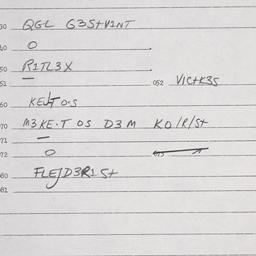 30 QGL G3StV1NT
40 O
50 R1TL3X
51 — 052 VICtK3S
60 KEJTO·S
70 M3KE·T OS D3M KO/R/St
71 —
72 O
80 FLEJD3R1St
81